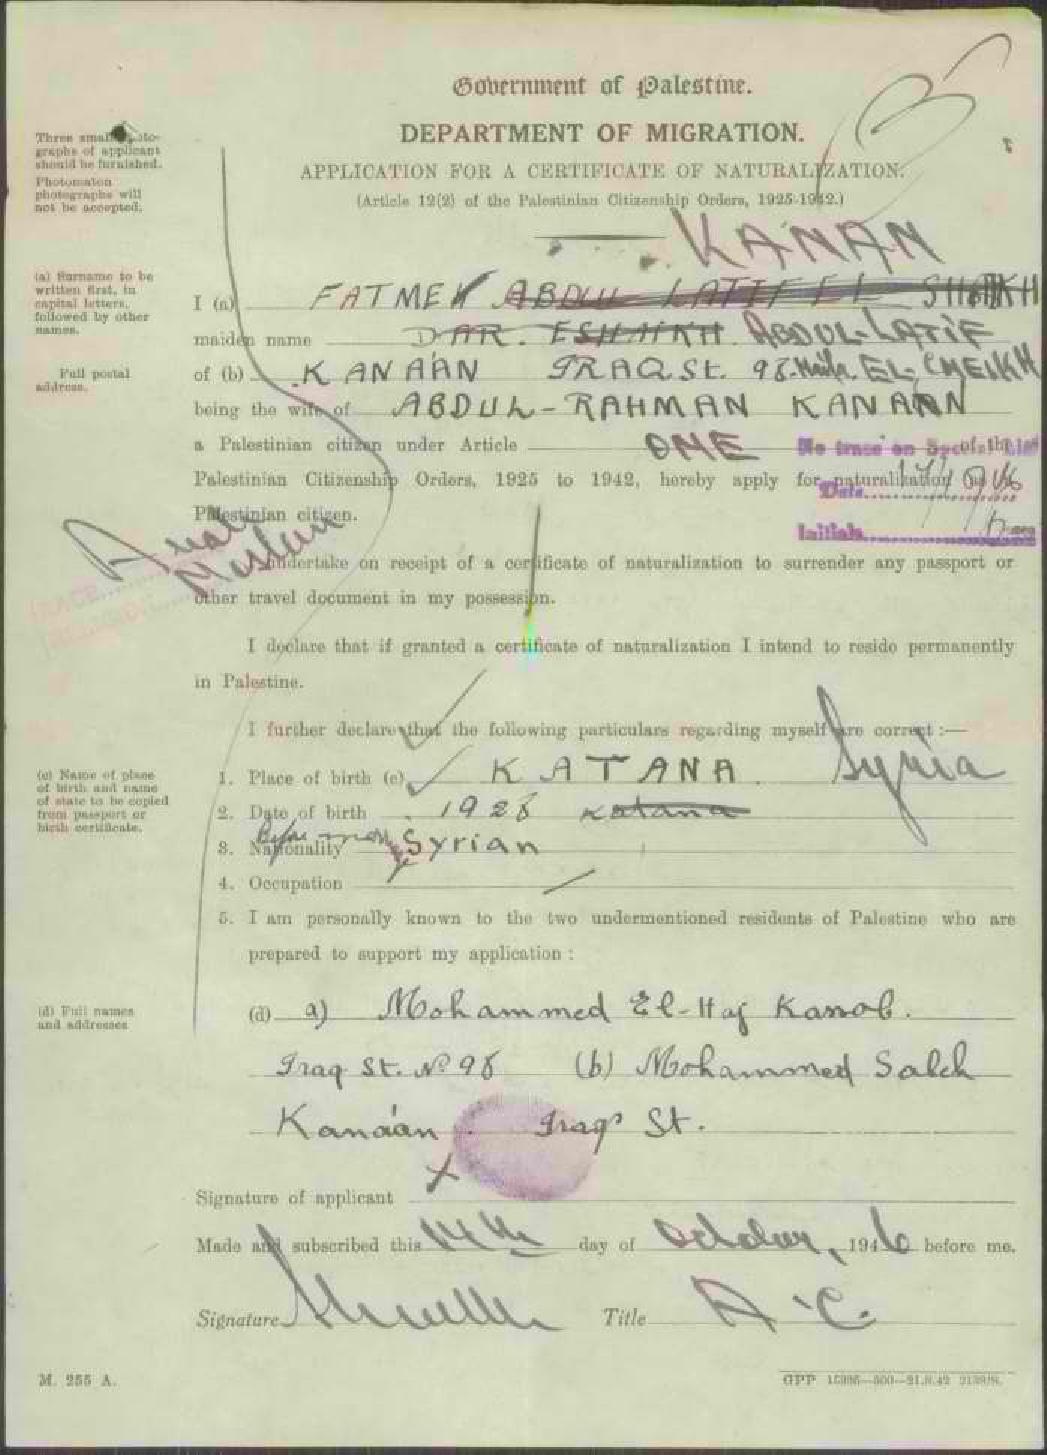 Government of Palestine.
DEPARTMENT OF MIGRATION.
APPLICATION FOR A CERTIFICATE OF NATURALIZATION.
(Article 12(2) of the Palestinian Citizenship Orders, 1925-1942.)
Three small photographs of applicant
should be furnished.
Photomaton
photographs will
not be accepted.
KANAN
(a) Surname to be
written first, in
capital letters,
followed by other
names.
I (a) FATMEH ABDUL LATIF EL SHAIKH
maiden name DAR. ESHAIKH ABDUL-LATIF
Full postal
address.
of (b) KANAÁN IRAQ St. 98 Haifa. EL-CHEIKH
being the wife of ABDUL-RAHMAN KANAAN
a Palestinian citizen under Article ONE of the
No trace on Special List
Palestinian Citizenship Orders, 1925 to 1942, hereby apply for naturalization as a
Date
Palestinian citizen.
Initials
Arab
Moslem
I undertake on receipt of a certificate of naturalization to surrender any passport or
other travel document in my possession.
I declare that if granted a certificate of naturalization I intend to reside permanently
in Palestine.
I further declare that the following particulars regarding myself are correct :—
(c) Name of place
of birth and name
of state to be copied
from passport or
birth certificate.
1. Place of birth (c) KATANA Syria
2. Date of birth 1928 Katana
3. Nationality Syrian
4. Occupation
5. I am personally known to the two undermentioned residents of Palestine who are
prepared to support my application :
(d) Full names
and addresses
(d) a) Mohammed El-Haj Kassab.
Iraq St. No 98 (b) Mohammed Saleh
Kanáan Iraq St.
Signature of applicant X
Made and subscribed this 14th day of October, 1946 before me.
Signature Title A.C.
M. 255 A.
GPP 15336—500—21.8.42